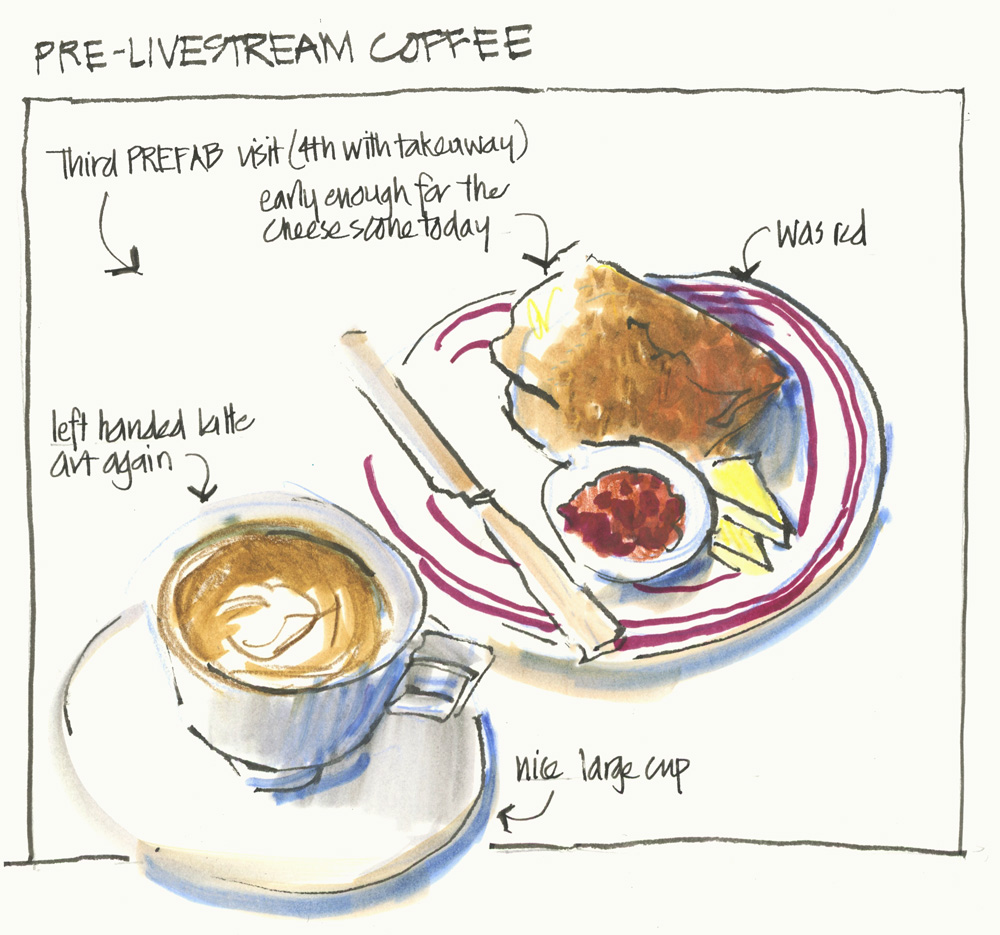 PRE-LIVESTREAM COFFEE
Third PREFAB visit (4th with takeaway)
early enough for the
cheese scone today
was red
left handed latte
art again
nice large cup